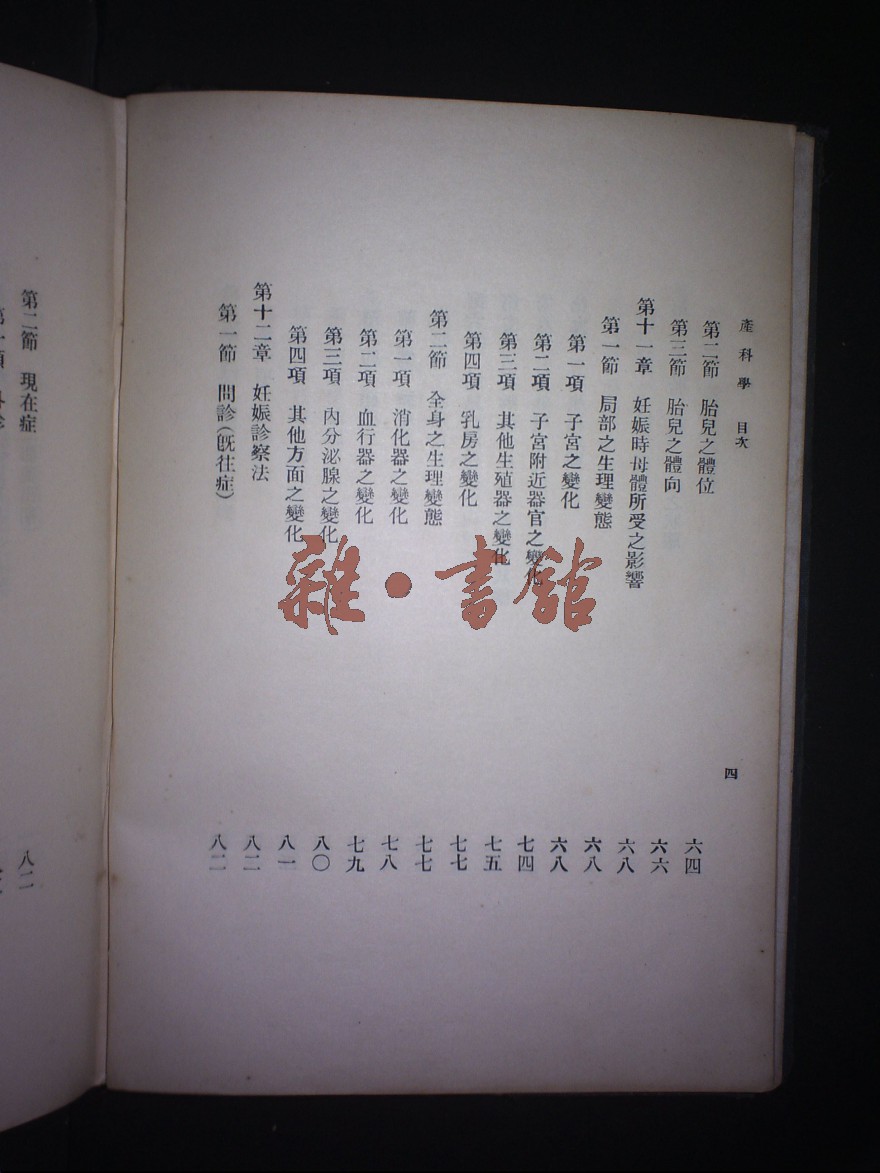 產科學 目次
四
第二節 胎兒之體位 六四
第三節 胎兒之體向 六六
第十一章 妊娠時母體所受之影響 六八
第一節 局部之生理變態 六八
第一項 子宮之變化 六八
第二項 子宮附近器官之變化 七四
第三項 其他生殖器之變化 七五
第四項 乳房之變化 七七
第二節 全身之生理變態 七七
第一項 消化器之變化 七八
第二項 血行器之變化 七九
第三項 內分泌腺之變化 八〇
第四項 其他方面之變化 八一
第十二章 妊娠診察法 八二
第一節 問診(既往症) 八二
第二節 現在症 八二
第一項
雜·書館